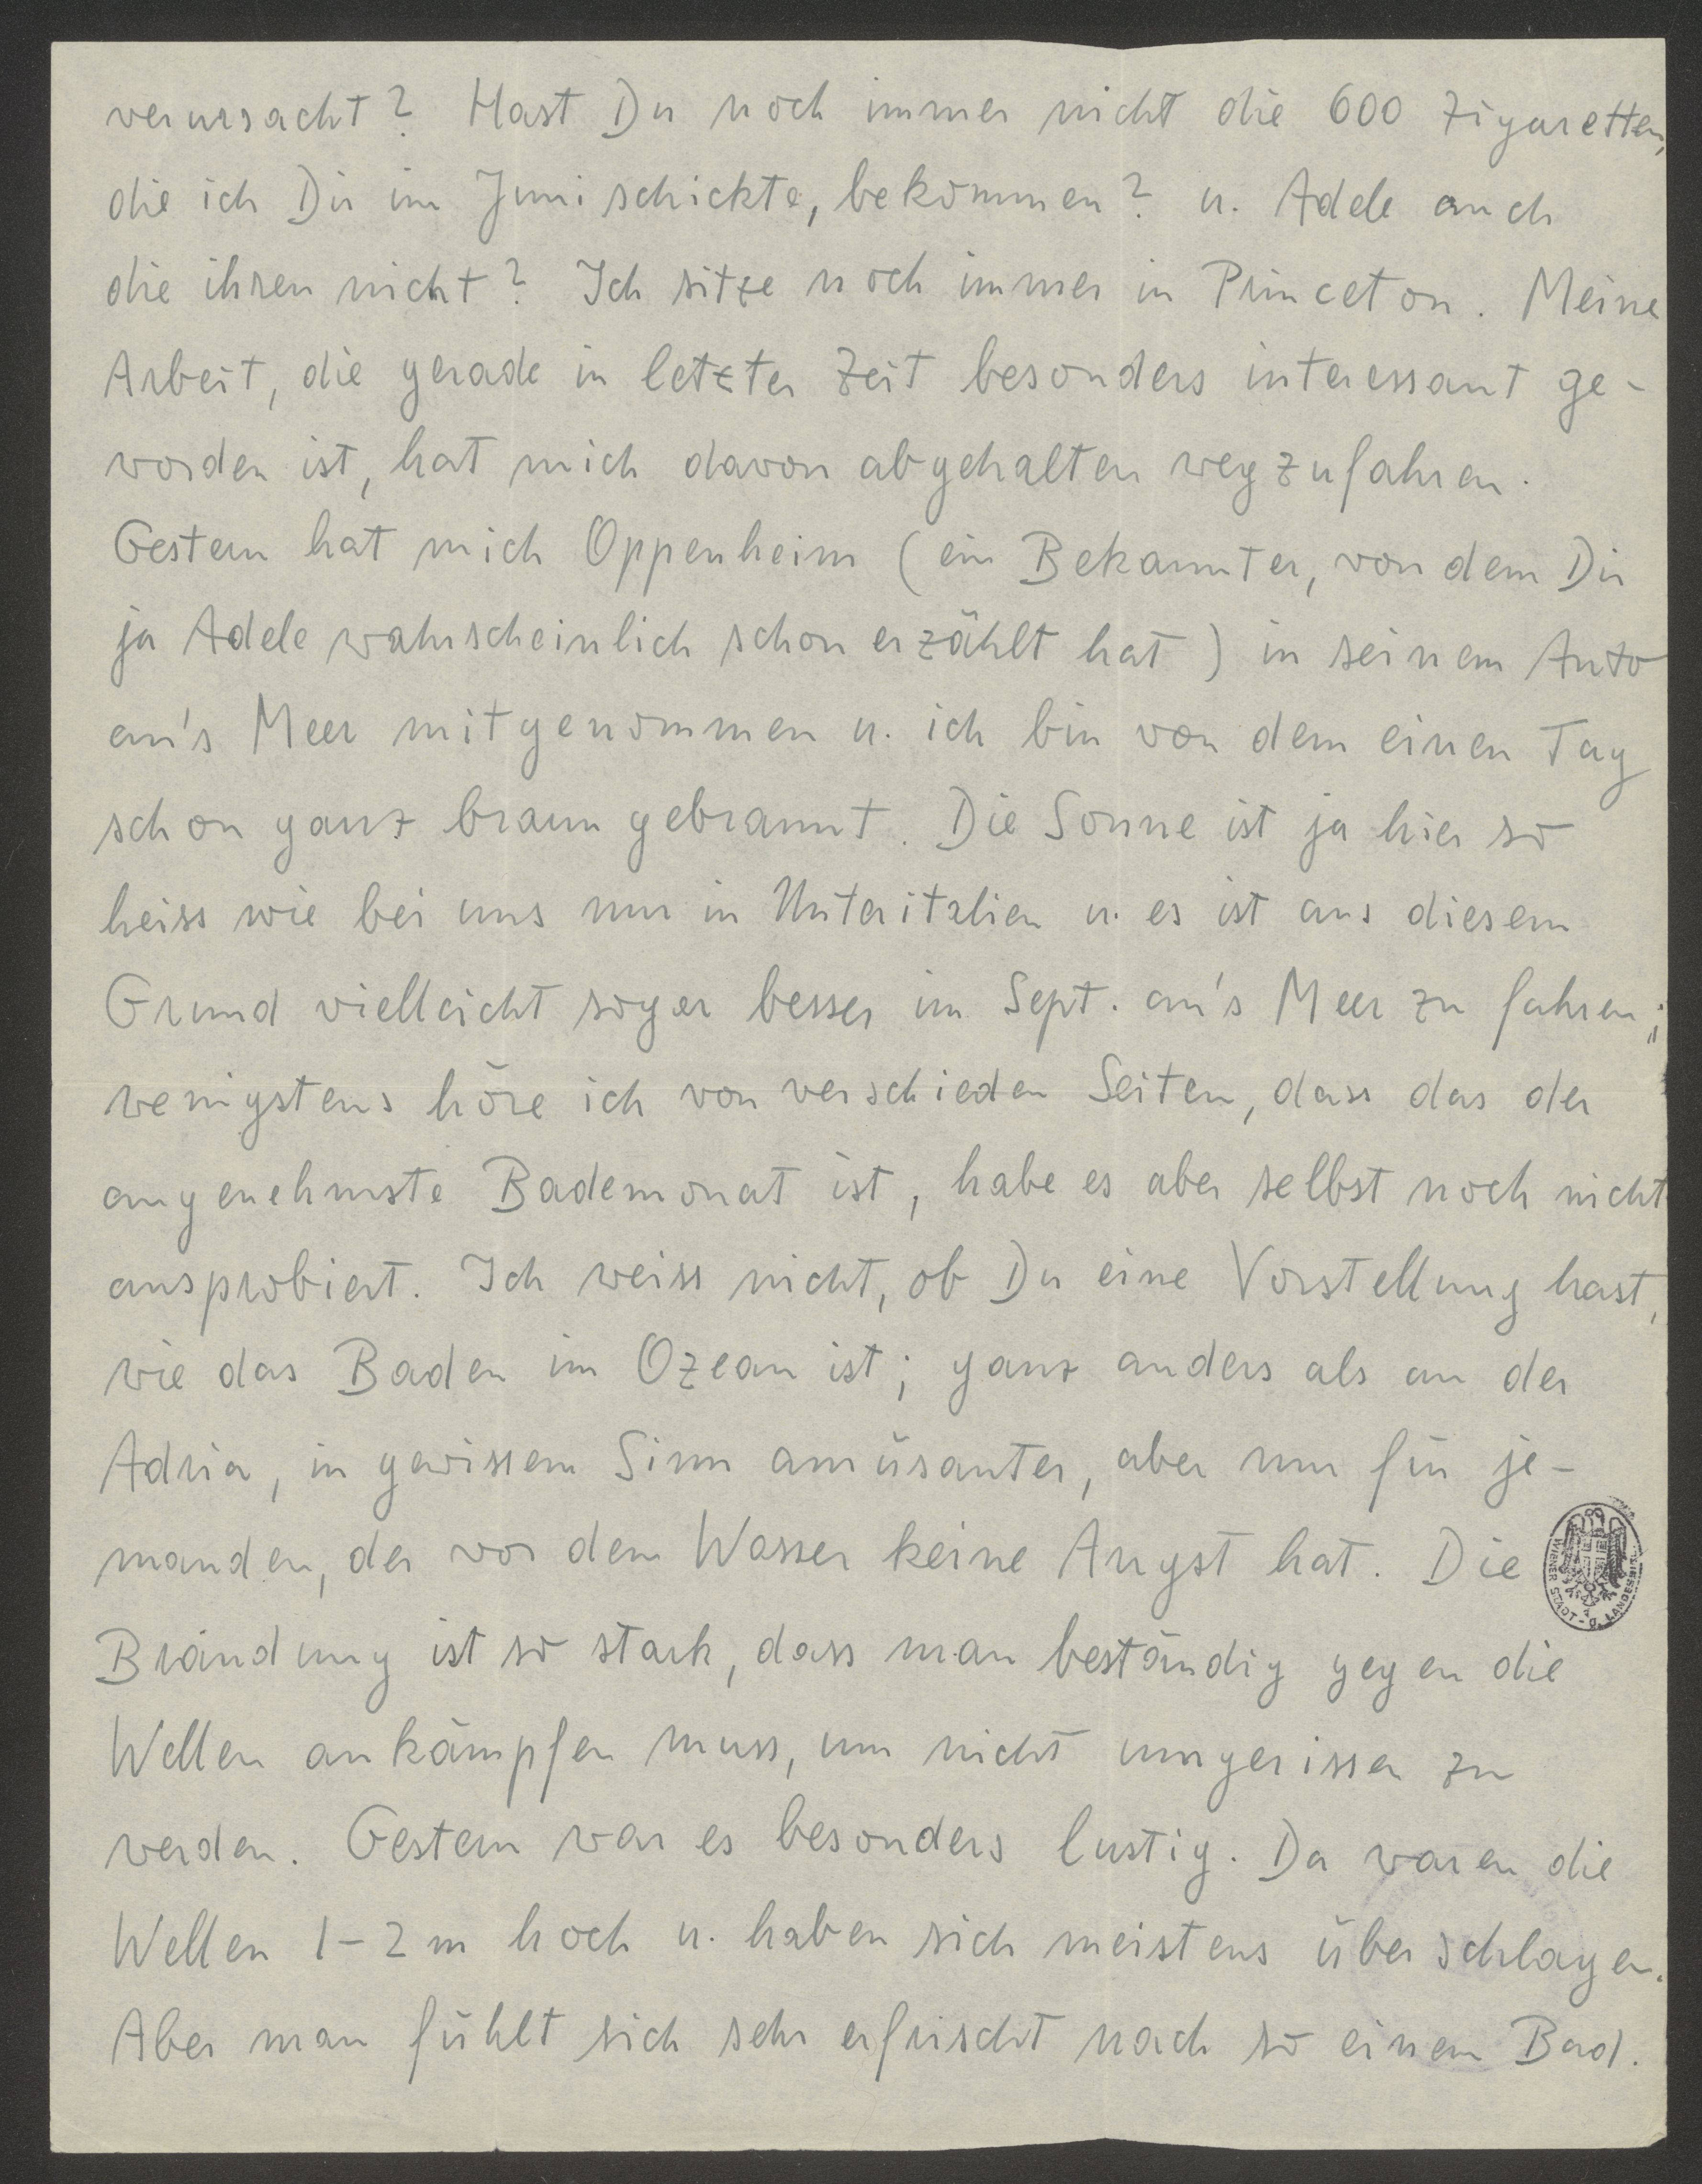 verursacht? Hast Du noch immer nicht die 600 Zigaretten,
die ich Dir im Juni schickte, bekommen? u. Adele auch
die ihren nicht? Ich sitze noch immer in Princeton. Meine
Arbeit, die gerade in letzter Zeit besonders interessant ge-
worden ist, hat mich davon abgehalten wegzufahren.
Gestern hat mich Oppenheim (ein Bekannter, von dem Dir
ja Adele wahrscheinlich schon erzählt hat) in seinem Auto
an's Meer mitgenommen u. ich bin von dem einen Tag
schon ganz braun gebrannt. Die Sonne ist ja hier so
heiss wie bei uns nur in Unteritalien u. es ist aus diesem
Grund vielleicht sogar besser im Sept. an's Meer zu fahren;
wenigstens höre ich von verschieden Seiten, dass das der
angenehmste Bademonat ist, habe es aber selbst noch nicht
ausprobiert. Ich weiss nicht, ob Du eine Vorstellung hast,
wie das Baden im Ozean ist; ganz anders als an der
Adria, in gewissem Sinn amüsanter, aber nur für je-
manden, der vor dem Wasser keine Angst hat. Die
Brandung ist so stark, dass man beständig gegen die
Wellen ankämpfen muss, um nicht umgerissen zu
werden. Gestern war es besonders lustig. Da waren die
Wellen 1-2 m hoch u. haben sich meistens überschlagen.
Aber man fühlt sich sehr erfrischt nach so einem Bad.
WIENER STADT- U. LANDESBIBL.